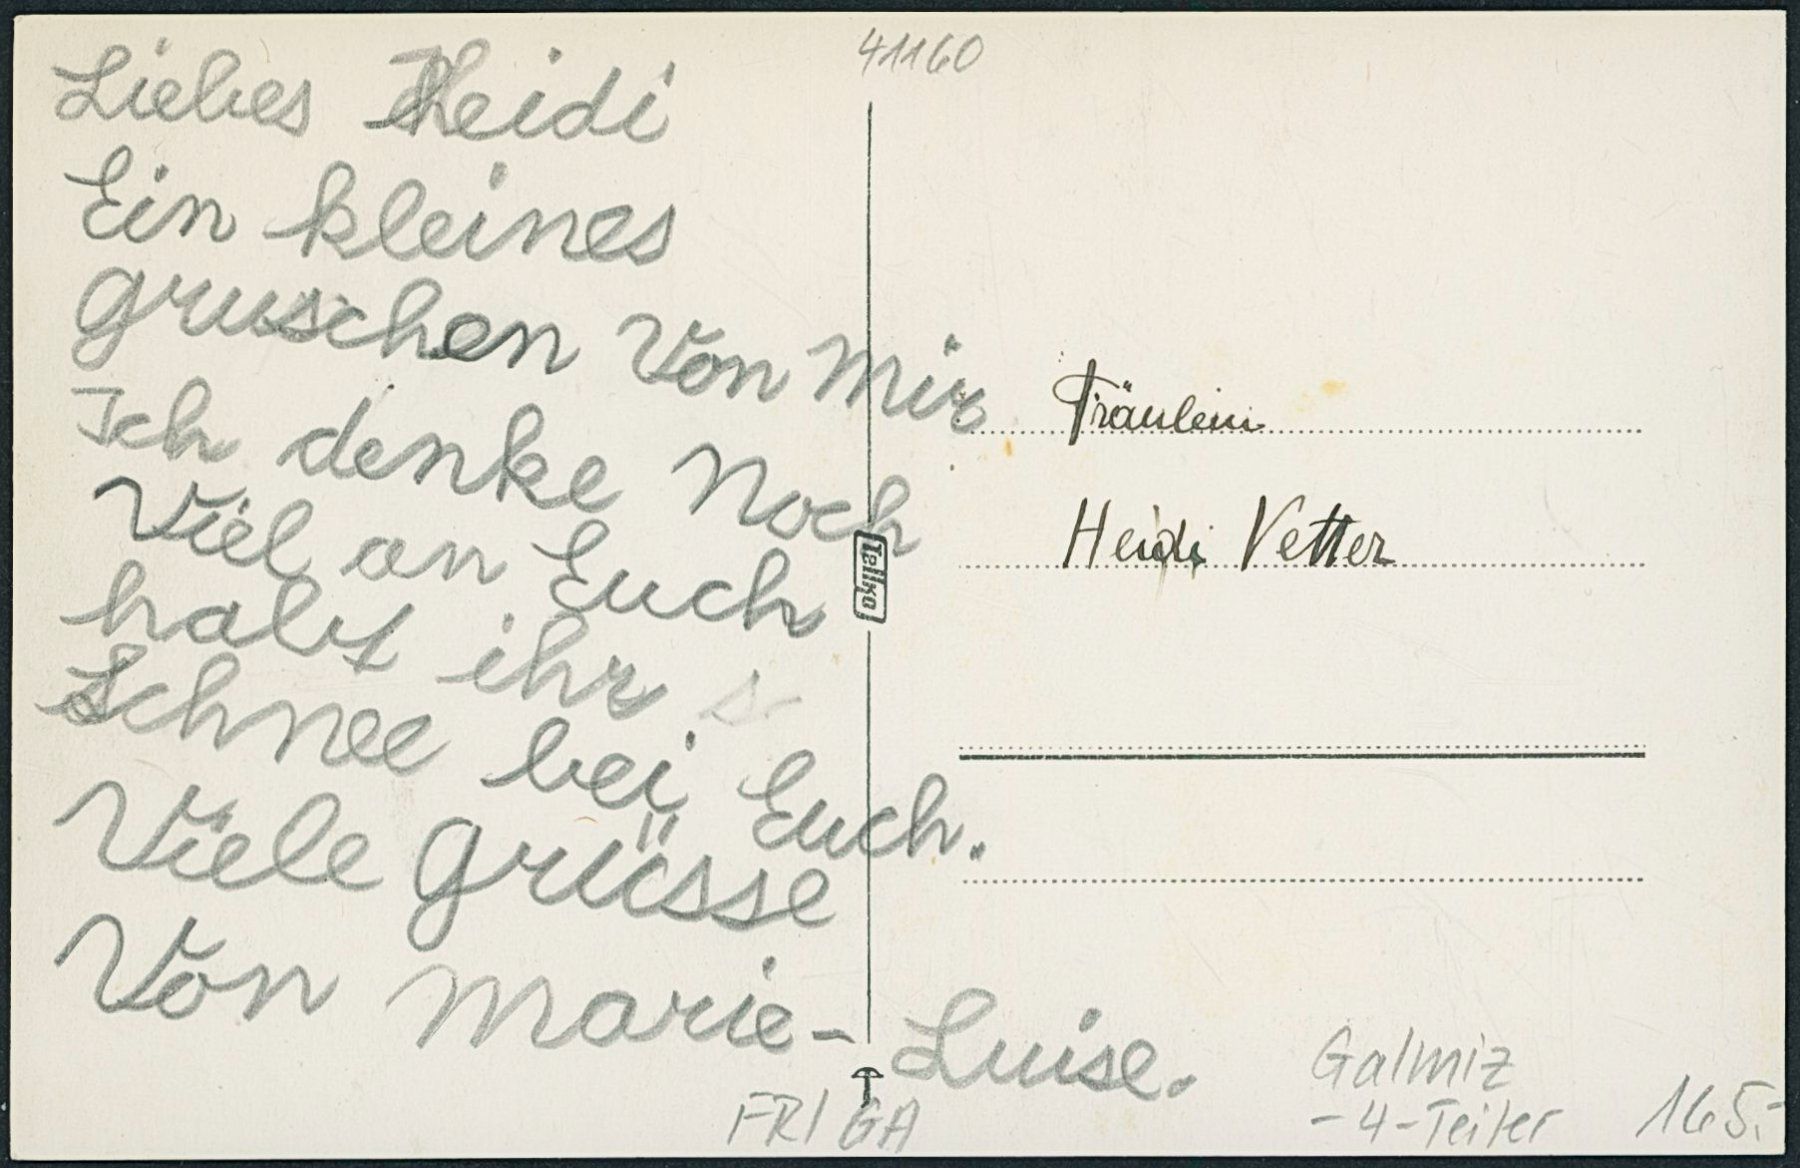 41160
Liebes Heidi
Ein kleines
gruschen Von Mir
Ich denke Noch
Viel an Euch
habt ihr s
Schnee bei Euch.
Viele Grüsse
Von Marie-Luise.
Tellko
Fräulein
Heidi Vetter
FR/GA
Galmiz
-4-Teiler
165.-